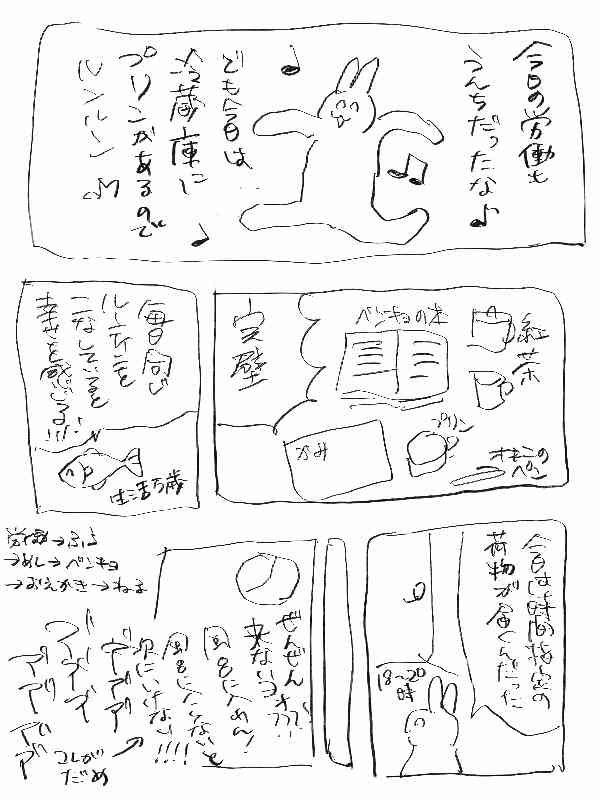 今日の労働も
うんちだったな♪
でも今日は
冷蔵庫に
プリンがあるので
ルンルーン♫
紅茶
ベンキョの本
プリン
オキニの
ペン
かみ
完璧
毎日同じ
ルーティンを
こなしていると
幸せを感じる!!!!
生活万歳
今日は時間指定の
荷物が届くんだった
18〜20
時
ぜんぜん
来ないヨォ???
風呂に入れん!
風呂に入いないと
次にいけない!!!!
アアアア
コレが
だめ
労働→ふろ
→めし→ベンキョ
→おえかき→ねる